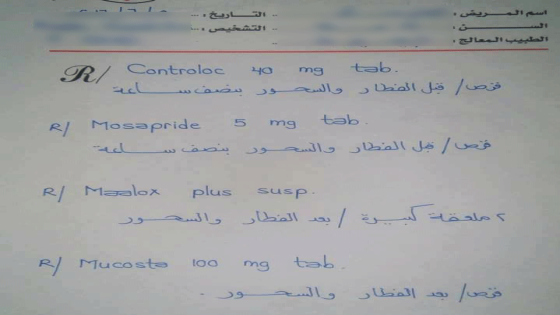 اسم المريض :
التاريخ :
السن :
التشخيص :
الطبيب المعالج :
R/ Controloc 40 mg tab.
قرص / قبل الفطار والسحور بنصف ساعة
R/ Mosapride 5 mg tab.
قرص / قبل الفطار والسحور بنصف ساعة
R/ Maalox plus susp.
٢ ملعقة كبيرة / بعد الفطار والسحور
R/ Mucosta 100 mg tab.
قرص / بعد الفطار والسحور .